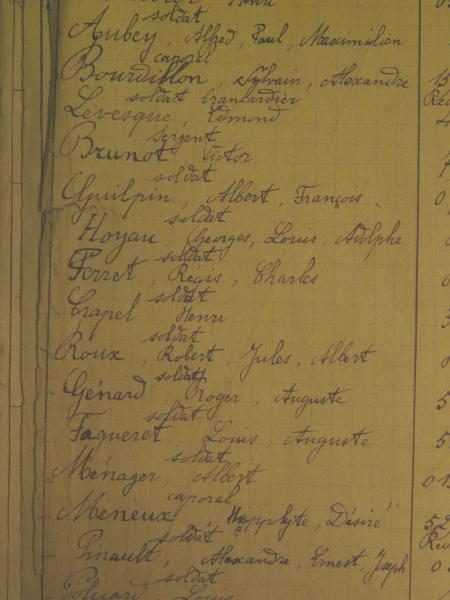 Henri
soldat
Aubey, Alfred, Paul, Maximilien
caporal
Bourdillon, Sylvain, Alexandre
soldat brancardier
Levesque, Edmond
Sergent
Brunot, Victor
soldat
Guilpin, Albert, François
soldat
Hoyau, Georges, Louis, Adolphe
soldat
Ferret, Régis, Charles
soldat
Crapel Henri
soldat
Roux, Robert, Jules, Albert
soldat
Génard, Roger, Auguste
soldat
Faqueret, Louis, Auguste
soldat
Ménager, Albert
caporal
Meneux Hyppolyte, Désiré
soldat
Pinault, Alexandre, Ernest, Joseph
soldat
Louis